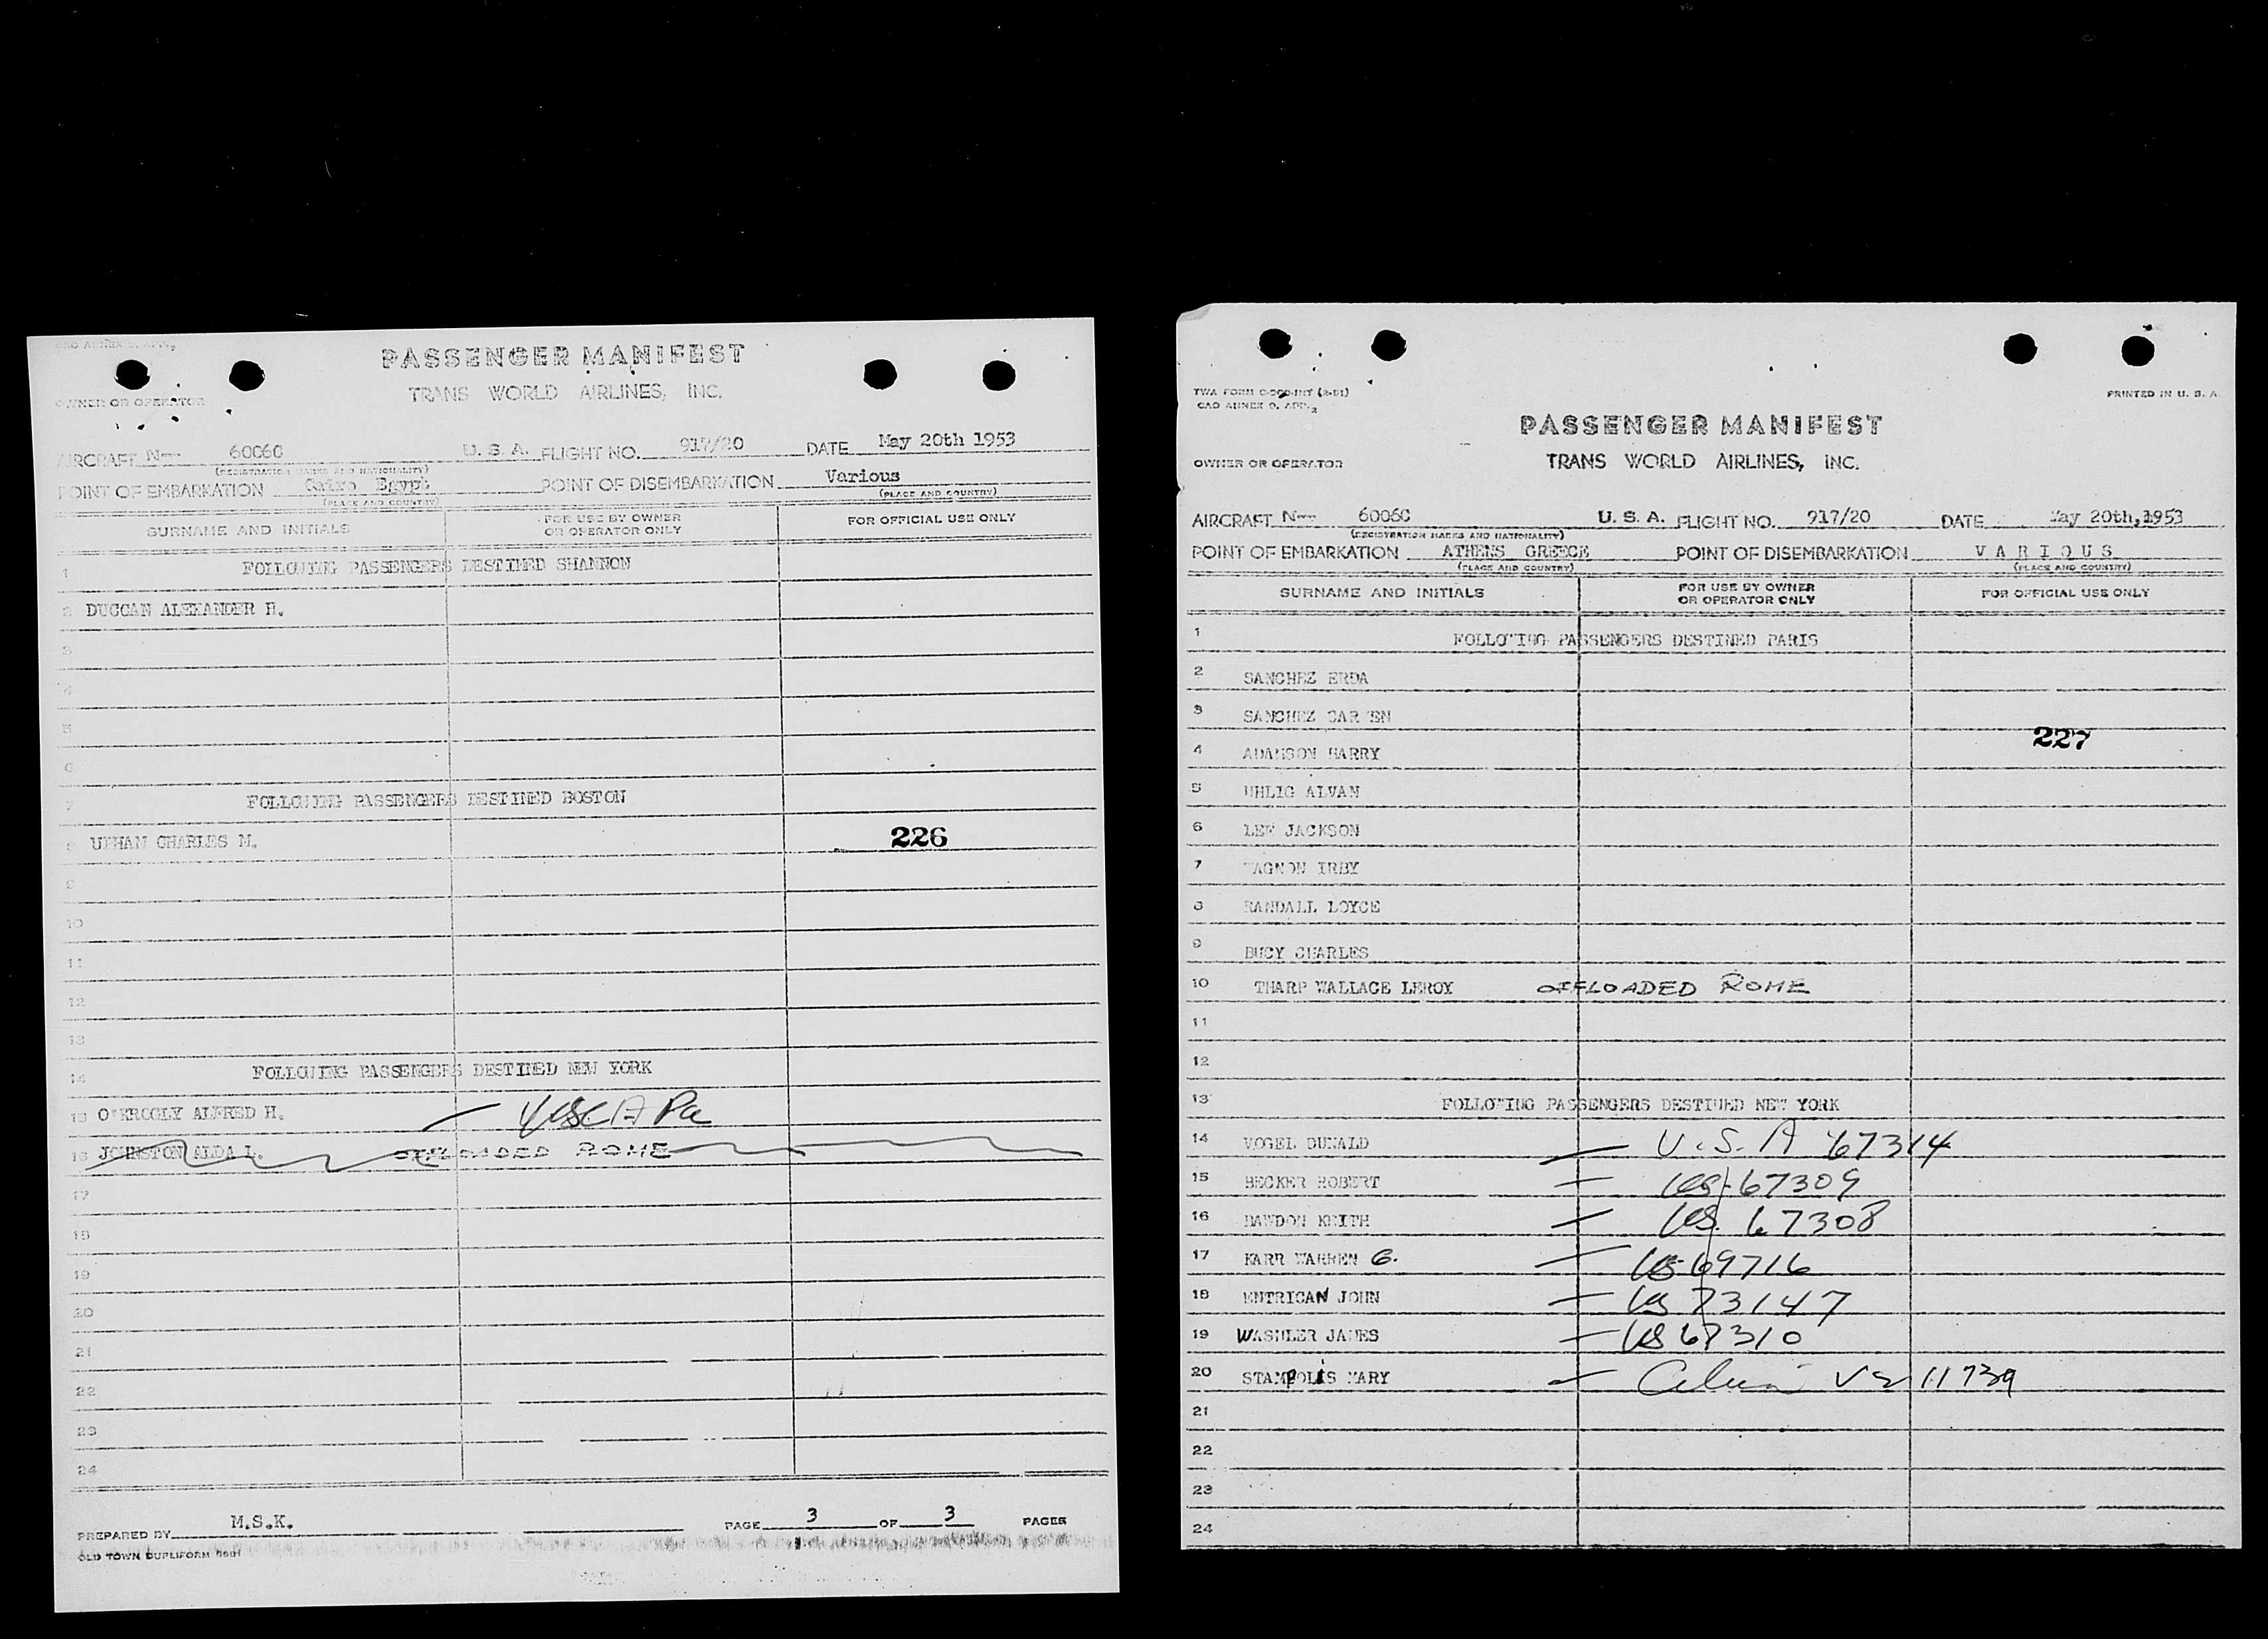 CAO ANNEX 9, APP. 2
PASSENGER MANIFEST
TRANS WORLD AIRLINES, INC.
OWNER OR OPERATOR
AIRCRAFT N-- 6006C U. S. A. FLIGHT NO. 917/20 DATE May 20th 1953
(REGISTRATION MARKS AND NATIONALITY)
POINT OF EMBARKATION Cairo Egypt POINT OF DISEMBARKATION Various
(PLACE AND COUNTRY) (PLACE AND COUNTRY)
SURNAME AND INITIALS FOR USE BY OWNER OR OPERATOR ONLY FOR OFFICIAL USE ONLY
1 FOLLOWING PASSENGERS DESTINED SHANNON
2 DUGGAN ALEXANDER H.
3
4
5
6
7 FOLLOWING PASSENGERS DESTINED BOSTON
8 UPHAM CHARLES M. 226
9
10
11
12
13
14 FOLLOWING PASSENGERS DESTINED NEW YORK
15 O'KROGLY ALFRED H. — USA
16 JOHNSTON ALDA L. OFFLOADED ROME
17
18
19
20
21
22
23
24
PREPARED BY M.S.K. PAGE 3 OF 3 PAGES
OLD TOWN DUPLIFORM
TWA FORM (2-51) PRINTED IN U. S. A.
CAO ANNEX 9, APP. 2
PASSENGER MANIFEST
OWNER OR OPERATOR TRANS WORLD AIRLINES, INC.
AIRCRAFT N-- 6006C U. S. A. FLIGHT NO. 917/20 DATE May 20th,1953
(REGISTRATION MARKS AND NATIONALITY)
POINT OF EMBARKATION ATHENS GREECE POINT OF DISEMBARKATION V A R I O U S
(PLACE AND COUNTRY) (PLACE AND COUNTRY)
SURNAME AND INITIALS FOR USE BY OWNER OR OPERATOR ONLY FOR OFFICIAL USE ONLY
1 FOLLOWING PASSENGERS DESTINED PARIS
2 SANCHEZ ERDA
3 SANCHEZ CARMEN
4 ADAMSON HARRY 227
5 UHLIG ALVAN
6 LEE JACKSON
7 TAGNON IRBY
8 RANDALL LOYCE
9 BUCY CHARLES
10 THARP WALLACE LEROY OFFLOADED ROME
11
12
13 FOLLOWING PASSENGERS DESTINED NEW YORK
14 VOGEL DUNALD — U.S.A 67314
15 BECKER ROBERT — US-67309
16 DAWDON KEITH — US. 67308
17 KARR WARREN G. — US-69716
18 ENTRICAN JOHN — US 73147
19 WASHLER JAMES — US 67310
20 STAMPOLIS MARY — 11739
21
22
23
24